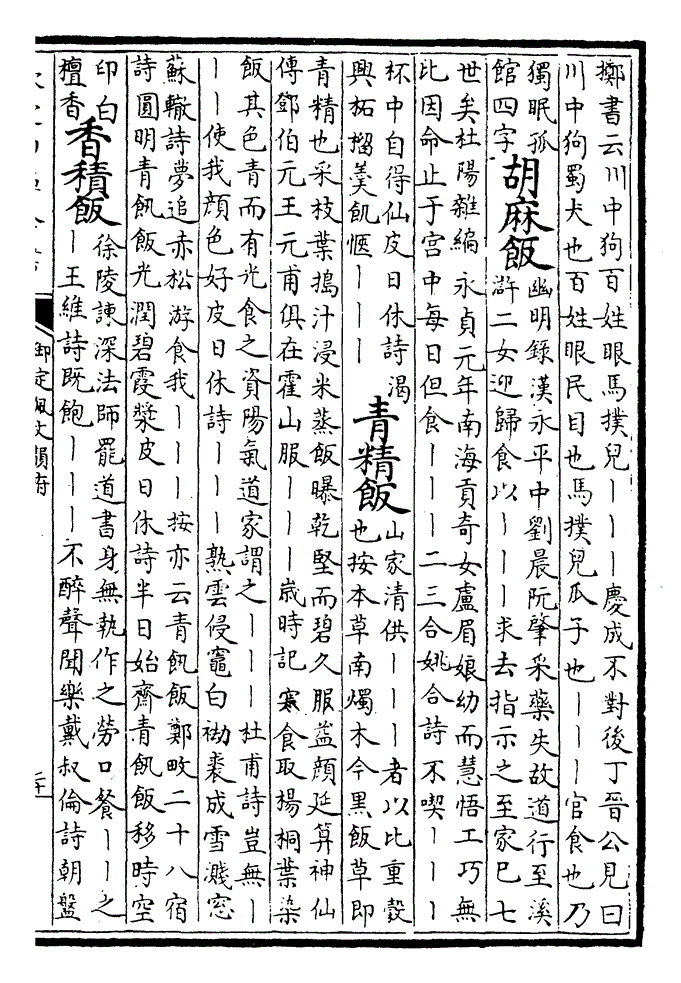 擲書云川中狗百姓眼馬撲兒｜｜｜慶成不對後丁晉公見曰
川中狗蜀犬也百姓眼民目也馬撲兒瓜子也｜｜｜官食也乃
獨眠孤
館四字
胡麻飯
幽明錄漢永平中劉晨阮肇采藥失故道行至溪
滸二女迎歸食以｜｜｜求去指示之至家已七
世矣杜陽雜編永貞元年南海貢奇女盧眉娘幼而慧悟工巧無
比因命止于宫中每日但食｜｜｜二三合姚合詩不喫｜｜｜
杯中自得仙皮日休詩渴
興柘榴羮飢愜｜｜｜
青精飯
山家清供｜｜｜者以比重穀
也按本草南燭木今黑飯草即
青精也采枝葉搗汁浸米蒸飯曝乾堅而碧久服益顔延算神仙
傳鄧伯元王元甫俱在霍山服｜｜｜歳時記寒食取楊桐葉染
飯其色青而有光食之資陽氣道家謂之｜｜｜杜甫詩豈無｜
｜｜使我顔色好皮日休詩｜｜｜熟雲侵竈白衪裘成雪濺窓
蘇轍詩夢追赤松游食我｜｜｜按亦云青飢飯鄭畋二十八宿
詩圓明青飢飯光潤碧霞漿皮日休詩半日始齋青飢飯移時空
印白
檀香
香積飯
徐陵諫深法師罷道書身無執作之勞口餐｜｜之
｜王維詩既飽｜｜｜不醉聲聞樂戴叔倫詩朝盤
御定佩文韻府